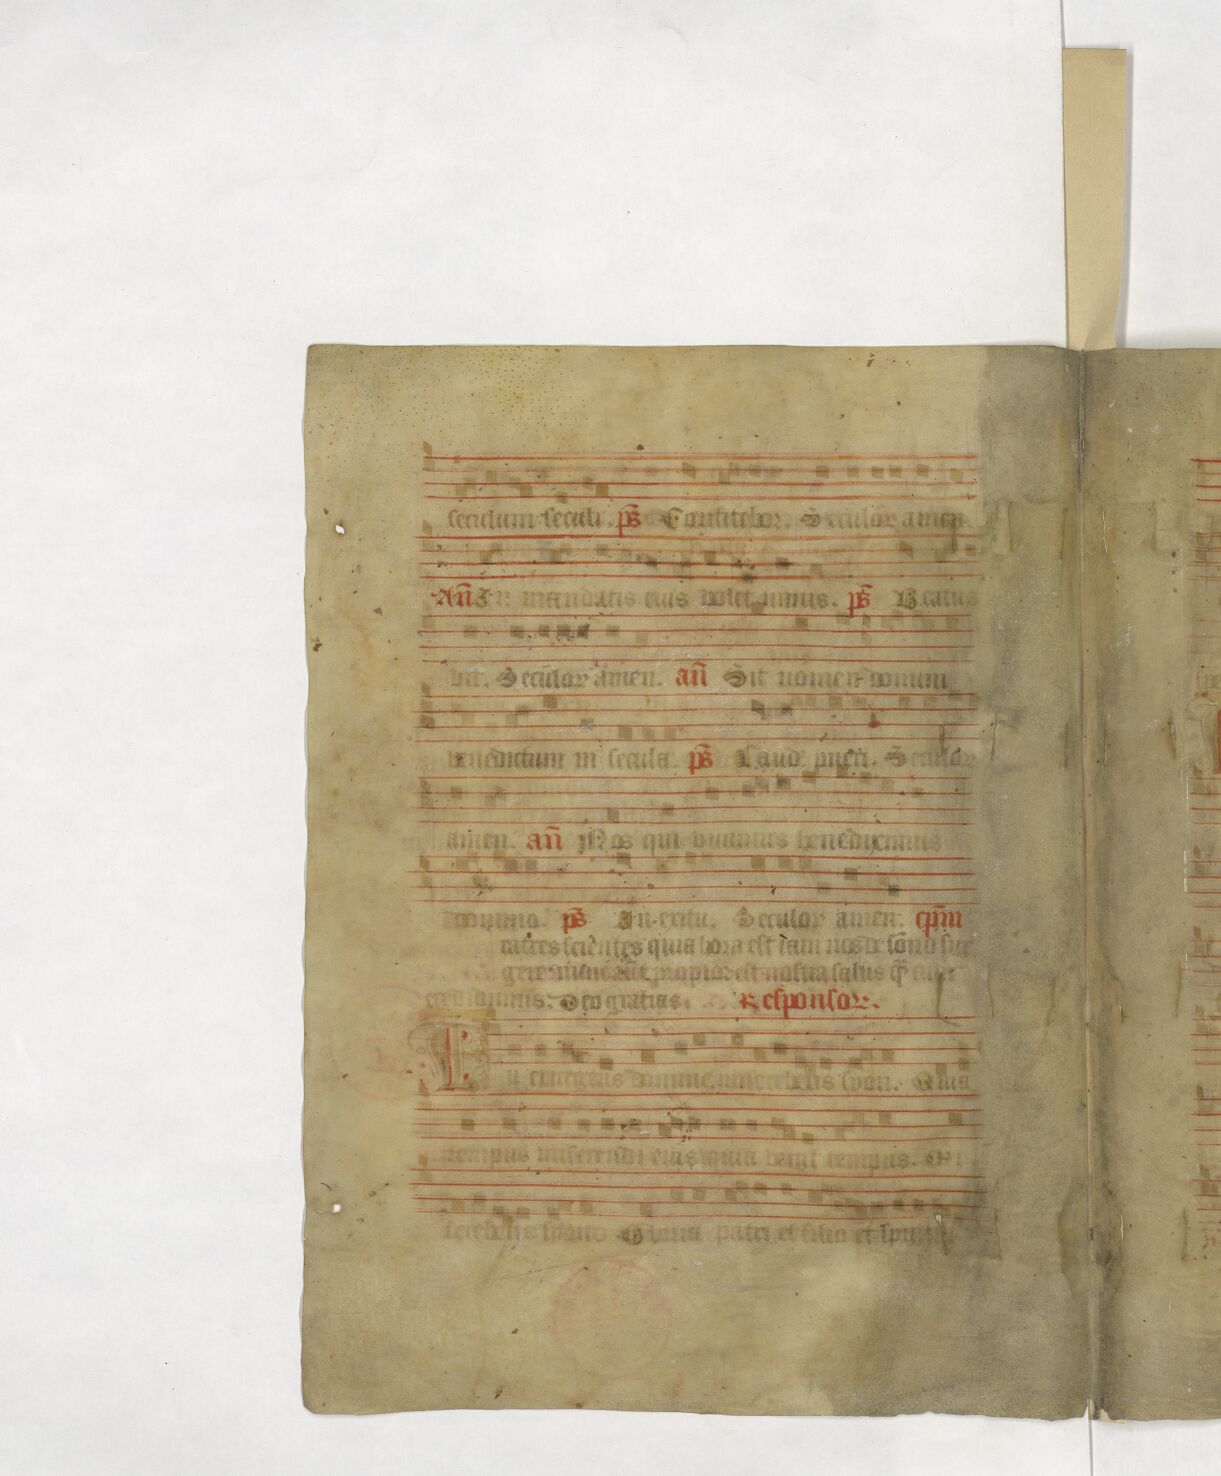 seculum seculi. ps̄ Confitebor. Seculor̄ amen
An̄ In mandatis eius volet nimis. ps̄ Beatus
vir. Seculor̄ amen. an̄ Sit nomen domini
benedictum in secula. ps̄ Laud. pueri. Seculor̄
amen. an̄ Nos qui vivimus benedicimus
domino. ps̄ In exitu. Seculor̄ amen. cpm̄
ratres scientes quia hora est iam nos de
gere propior est nostra salus
credidimus. Deo gratias. Responsor̄.
Tu exurgens domine misereberis syon. Quia
tempus miserendi eius quia venit tempus.
Gloria patri et filio et